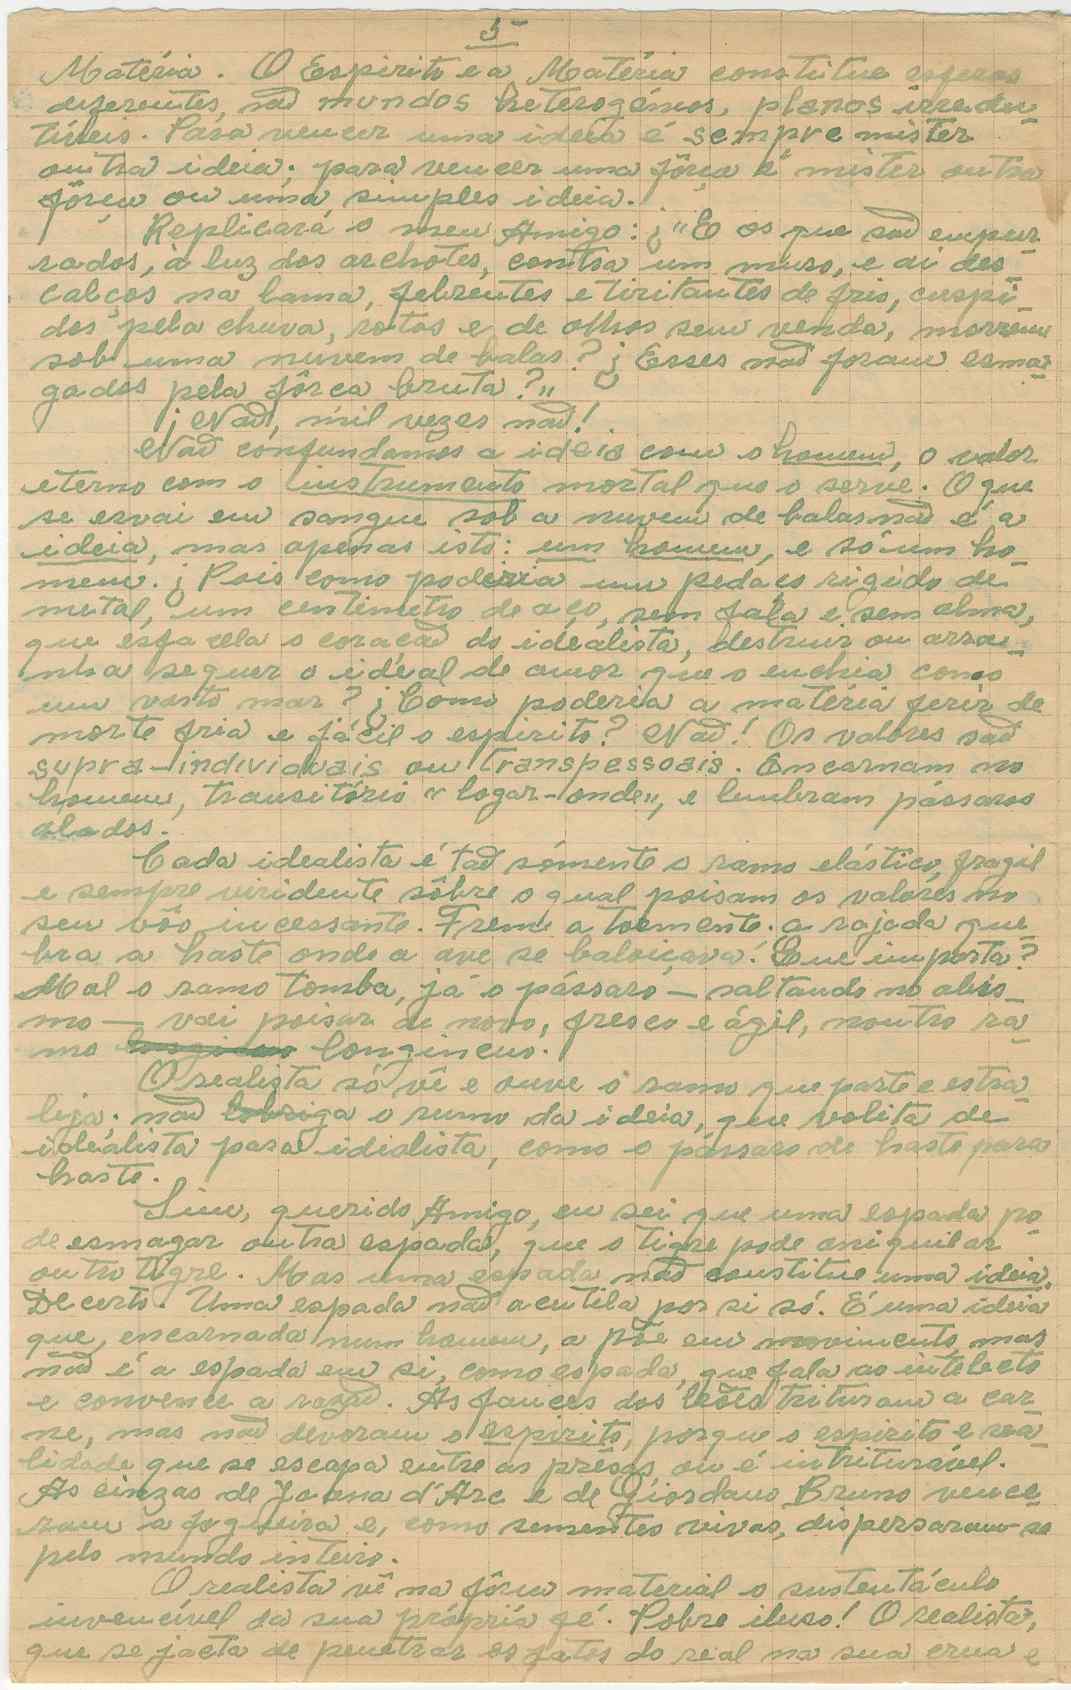 5
Matéria. O Espirito e a Matéria constitue esferas
diferentes, são mundos heterogéneos, planos irredu-
tíveis. Para vencer uma ideia é sempre mister
outra ideia; para vencer uma fôrça é mister outra
fôrça ou uma simples ideia.
Replicará o meu Amigo: ¿"E os que são empur-
rados, à luz dos archotes, contra um muro, e aí des-
calços na lama, febrentes e tiritantes de frio, cuspi-
dos pela chuva, rotos e de olhos sem venda, morrem
sob uma nuvem de balas? ¿Esses não foram esma-
gados pela fôrça bruta?"
¡Não, mil vezes não!
Não confundamos a ideia com o homem, o valor
eterno com o instrumento mortal que o serve. O que
se esvai em sangue sob a nuvem de balas não é a
ideia, mas apenas isto: um homem, e só um ho-
mem. ¿Pois como poderia um pedaço rigido de
metal, um centimetro de aço, sem fala e sem alma,
que esfacela o coração do idealista, destruir ou arra-
nhar sequer o idéal de amor que o enchia como
um vasto mar? ¿Como poderia a matéria ferir de
morte fria e fácil o espirito? Não! Os valores são
supra-individuais ou transpessoais. Encarnam no
homem, transitório "logar-onde", e lembram pássaros
alados.
Cada idealista é tão sómente o ramo elástico, fragil
e sempre viridente sôbre o qual poisam os valores no
seu vôo incessante. Freme a tormenta; a rajada que-
bra a haste onde a ave se baloiçava! Que importa?
Mal o ramo tomba, já o pássaro — saltando no abis-
mo — vai poisar de novo, fresco e ágil, noutro ra-
mo longincuo.
O realista só vê e ouve o ramo que parte e estra-
leja; não lobriga o rumo da ideia, que volita de
idéalista para idialista, como o pássaro de haste para
haste.
Sim, querido Amigo, eu sei que uma espada po-
de esmagar outra espada, que o tigre pode aniquilar
outro tigre. Mas uma espada não constitue uma ideia.
Decerto. Uma espada não acutila por si só. É uma ideia
que, encarnada num homem, a põe em movimento, mas
não é a espada em si, como espada, que fala ao intelecto
e convence a razão. As fauces dos leões trituram a car-
ne, mas não devoram o espirito, porque o espirito e rea-
lidade que se escapa entre as prêsas, ou é intriturável.
As cinzas de Joana d'Arc e de Giordano Bruno vence-
ram a fogueira e, como sementes vivas, dispersaram-se
pelo mundo inteiro.
O realista vê na fôrça material o sustentáculo
invencível da sua própria fé. Pobre iluso! O realista,
que se jacta de penetrar os fatos do real na sua crua e